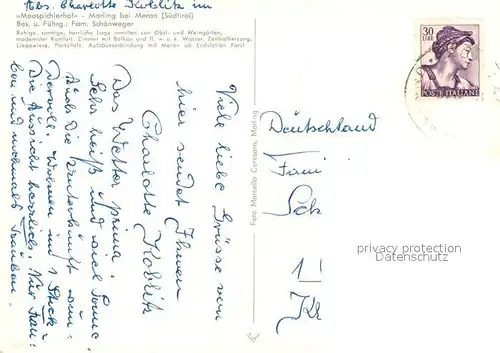 Abs. Charlotte Koblitz im
»Moospichlerhof« - Marling bei Meran (Südtirol)
Bes. u. Führg.: Fam. Schönweger
Ruhige, sonnige, herrliche Lage inmitten von Obst- und Weingärten,
modernster Komfort. Zimmer mit Balkon und fl. w. u. k. Wasser, Zentralheizung,
Liegewiese, Parkplatz. Autobusverbindung mit Meran ab Endstation Forst
Viele liebe Grüsse von
hier sendet Ihnen
Charlotte Koblitz
Das Wetter prima.
Sehr heiß und viel Sonne.
Auch die Unterkunft wun-
dervoll. Wohnen im 1 Stock.
Die Aussicht herrlich. Nur Trau-
ben und nochmals Trauben.
Foto Marcello Ceresara, Marling
30
LIRE
POSTE ITALIANE
Deutschland
Fami
Sch
1
Kr
privacy protection
Datenschutz